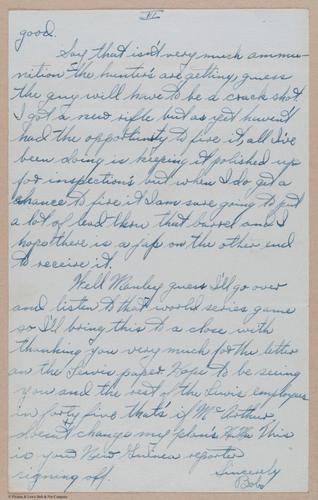 VI
good.
Say that isn't very much ammu-
nition the hunters are getting, guess
the guy will have to be a crack shot.
I got a new rifle but as yet haven't
had the opportunity to fire it, all I've
been doing is keeping it polished up
for inspections but when I do get a
chance to fire it I am sure going to put
a lot of lead thru that barrel and I
hope there is a jap on the other end
to receive it.
Well Manley guess I'll go over
and listen to that world series game
so I'll bring this to a close with
thanking you very much for the letter
an the Lewis paper. Hope to be seeing
you and the rest of the Lewis employees
in forty five thats if McArthur
doesn't change my plans. This
is your New Guinea reporter
signing off.
Sincerely
Bob